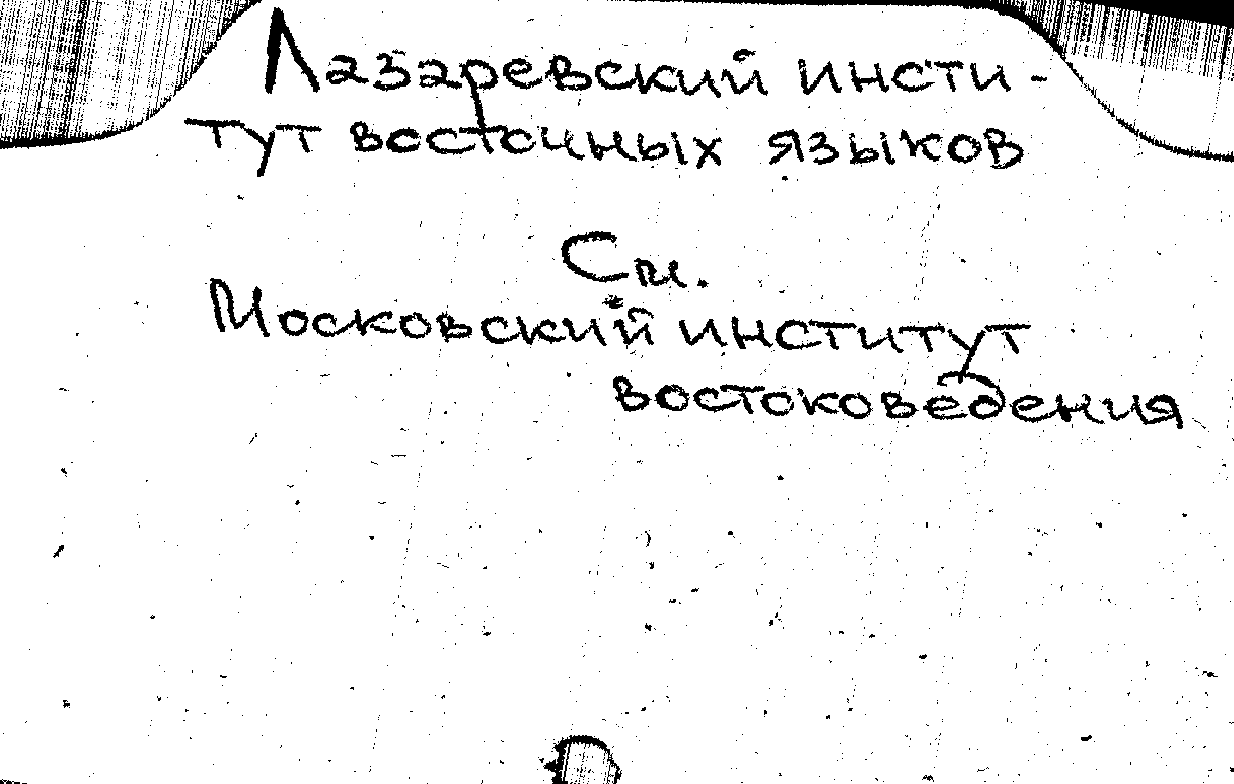 Лазаревский инсти-
тут восточных языков
См.
Московский институт
востоковедения